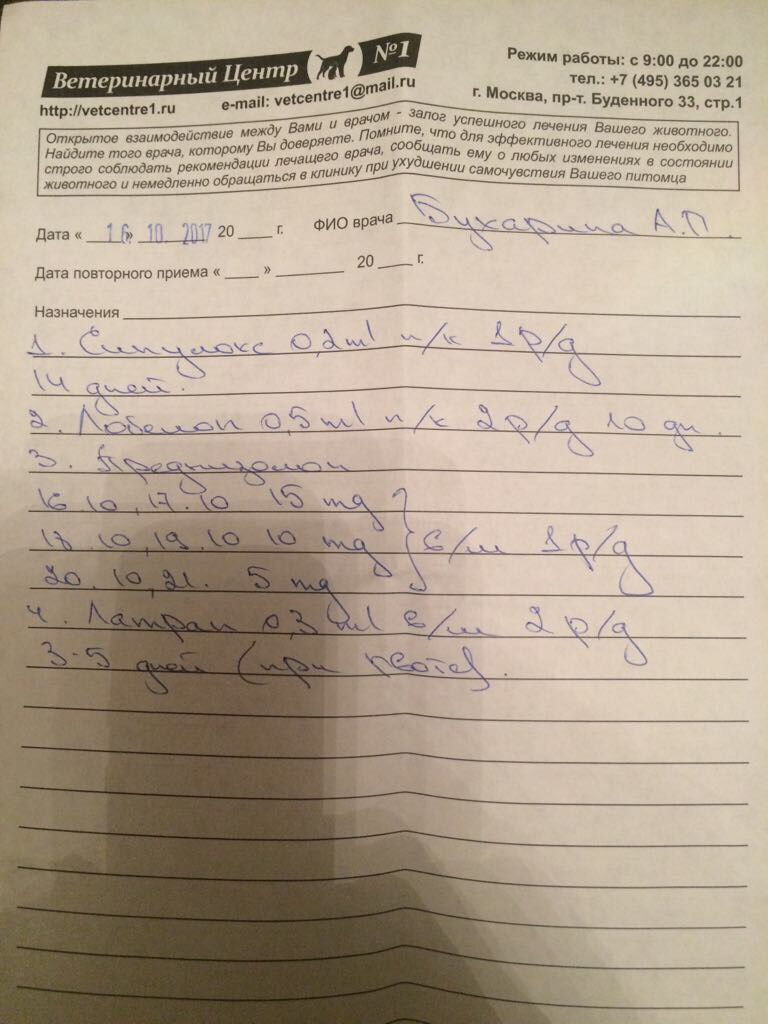 Ветеринарный Центр №1
http://vetcentre1.ru e-mail: vetcentre1@mail.ru
Режим работы: с 9:00 до 22:00
тел.: +7 (495) 365 03 21
г. Москва, пр-т. Буденного 33, стр.1
Открытое взаимодействие между Вами и врачом - залог успешного лечения Вашего животного.
Найдите того врача, которому Вы доверяете. Помните, что для эффективного лечения необходимо
строго соблюдать рекомендации лечащего врача, сообщать ему о любых изменениях в состоянии
животного и немедленно обращаться в клинику при ухудшении самочувствия Вашего питомца
Дата « 16 » 10 2017 20 ___ г. ФИО врача Бухарина А.П.
Дата повторного приема « ___ » ______ 20 ___ г.
Назначения
1. Синулокс 0,2 ml п/к 1 р/д
14 дней.
2. Лобелон 0,5 ml п/к 2 р/д 10 дн.
3. Преднизолон
16.10, 17.10 15 mg
18.10, 19.10 10 mg } в/м 1 р/д
20.10, 21. 5 mg
4. Латран 0,3 ml в/м 2 р/д
3-5 дней (при рвоте).